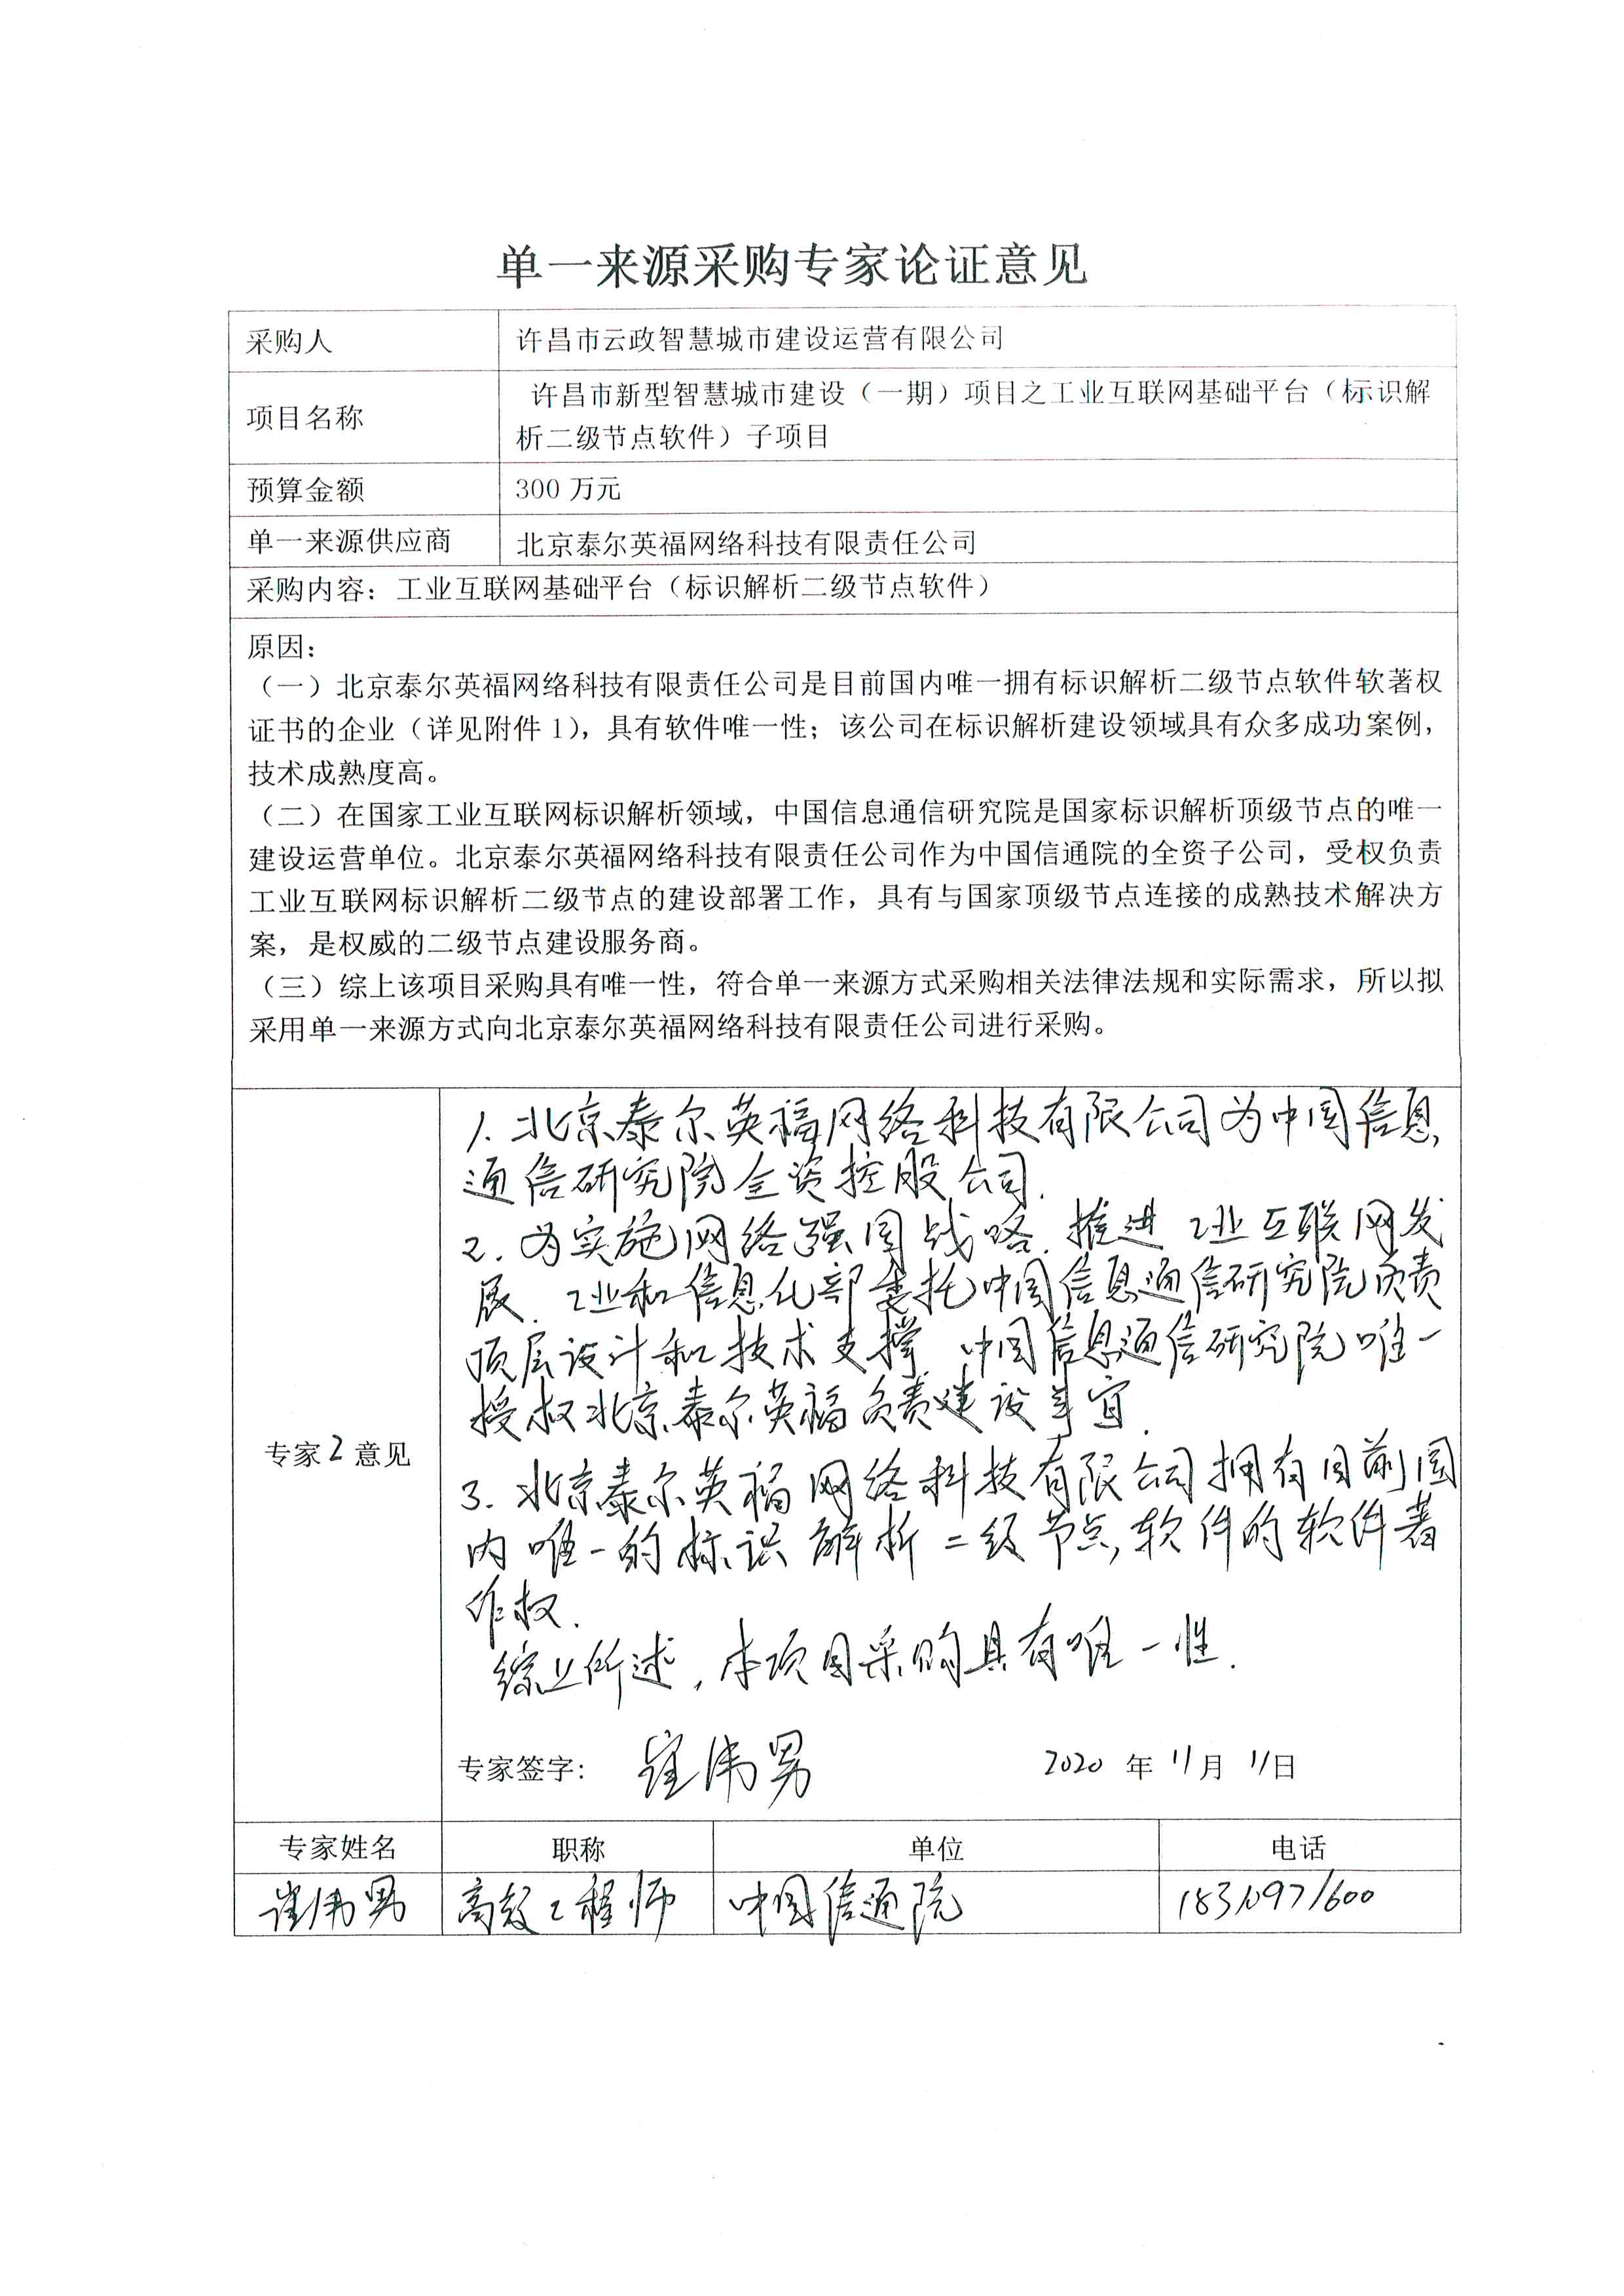 单一来源采购专家论证意见
采购人
许昌市云政智慧城市建设运营有限公司
项目名称
许昌市新型智慧城市建设（一期）项目之工业互联网基础平台（标识解
析二级节点软件）子项目
预算金额
300 万元
单一来源供应商
北京泰尔英福网络科技有限责任公司
采购内容：工业互联网基础平台（标识解析二级节点软件）
原因：
（一）北京泰尔英福网络科技有限责任公司是目前国内唯一拥有标识解析二级节点软件软著权
证书的企业（详见附件 1），具有软件唯一性；该公司在标识解析建设领域具有众多成功案例，
技术成熟度高。
（二）在国家工业互联网标识解析领域，中国信息通信研究院是国家标识解析顶级节点的唯一
建设运营单位。北京泰尔英福网络科技有限责任公司作为中国信通院的全资子公司，受权负责
工业互联网标识解析二级节点的建设部署工作，具有与国家顶级节点连接的成熟技术解决方
案，是权威的二级节点建设服务商。
（三）综上该项目采购具有唯一性，符合单一来源方式采购相关法律法规和实际需求，所以拟
采用单一来源方式向北京泰尔英福网络科技有限责任公司进行采购。
1. 北京泰尔英福网络科技有限公司为中国信息
通信研究院全资控股公司.
2. 为实施网络强国战略. 推进工业互联网发
展. 工业和信息化部委托中国信息通信研究院负责
顶层设计和技术支撑. 中国信息通信研究院唯一
授权北京泰尔英福负责建设事宜.
专家2意见
3. 北京泰尔英福网络科技有限公司拥有目前国
内唯一的标识解析二级节点软件的软件著
作权.
综上所述, 本项目采购具有唯一性.
专家签字： 崔伟男 2020 年 11 月 11 日
专家姓名 职称 单位 电话
崔伟男 高级工程师 中国信通院